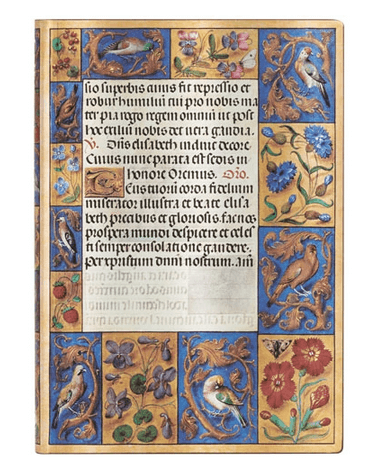 suo superbis annis fit repressio et
robur humili tui pio nobis ma
ter pia rogo regem omniū ut post
hoc exiliū nobis det vera gaudia.
V. Dn̄s elisabeth induit decore.
Cuius nunc parata est sedis in
honore Oremus. Oro.
Tensuorū corda fidelium
miserator illustra et beate elisa
beth precibus et gloriosis. fac nos
prospera mundi despicere et celes
ti semper consolatione gaudere.
per xpristum dnm̄ nostrum. am̄